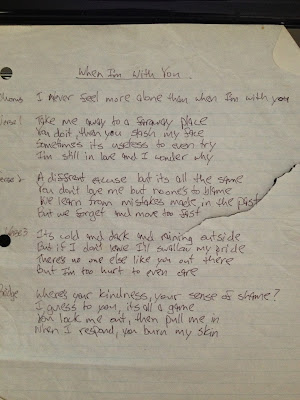 When I'm With You
Chorus I never feel more alone than when I'm with you
Verse 1 Take me away to a faraway place
You do it, then you slash my face
Sometimes its useless to even try
I'm still in love and I wonder why
Verse 2 A different excuse but its all the same
You don't love me but no one's to blame
We learn from mistakes made in the past
But we forget and move too fast
Verse 3 Its cold and dark and raining outside
But if I don't leave I'll swallow my pride
There's no one else like you out there
But I'm too hurt to even care
Bridge Where's your kindness, your sense of shame?
I guess to you, its all a game
You lock me out, then pull me in
When I respond, you burn my skin